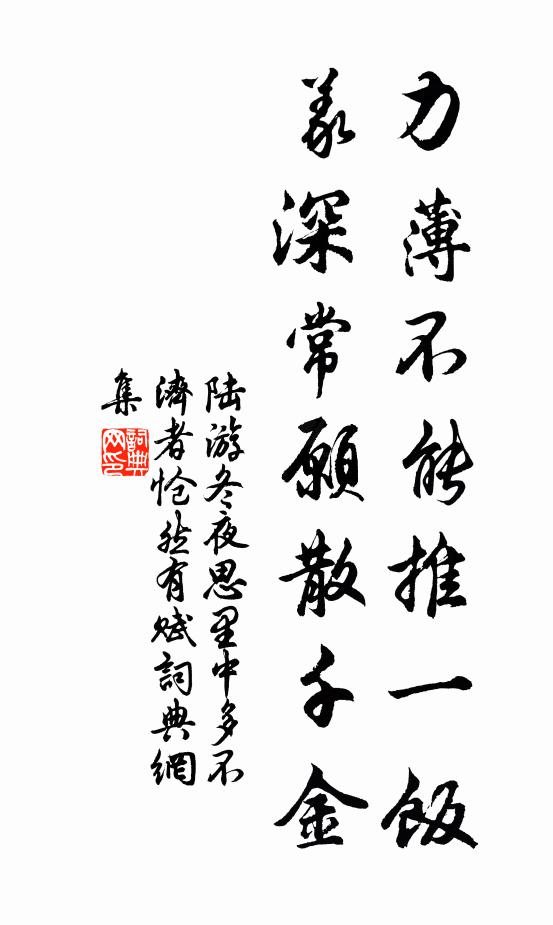 力薄不能推一飯
義深常願散千金
陸游冬夜思里中多不
濟者愴然有賦詞典網
集
詞典
网印